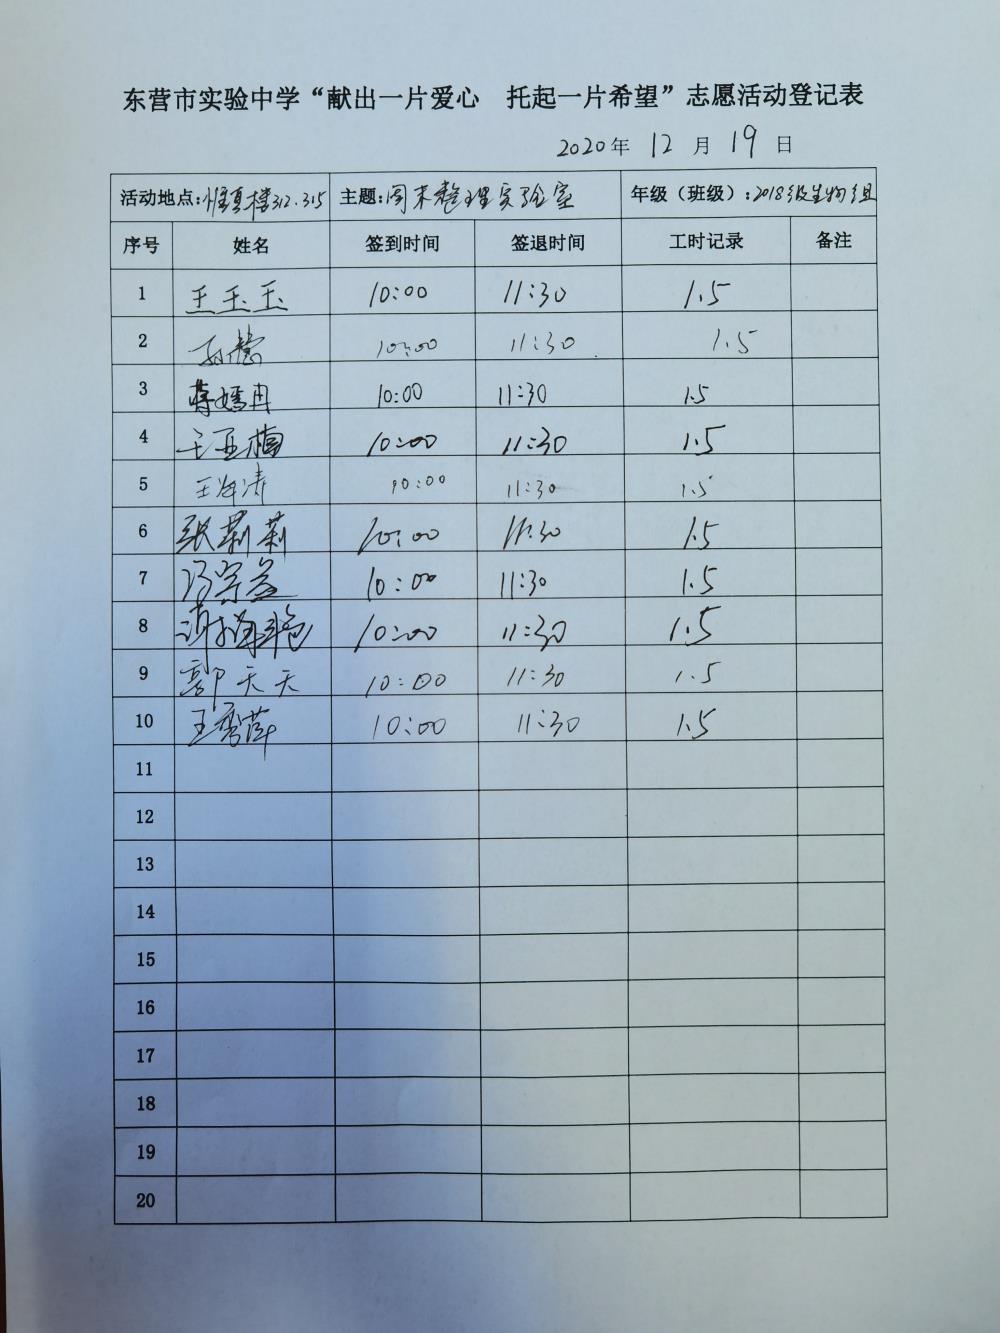 东营市实验中学“献出一片爱心 托起一片希望”志愿活动登记表
2020年 12 月 19 日
活动地点: 楼312.315 主题:周末整理实验室 年级（班级）:2018级生物组
序号 姓名 签到时间 签退时间 工时记录 备注
1 王玉玉 10:00 11:30 1.5
2 孙慧 10:00 11:30 1.5
3 蒋嫣冉 10:00 11:30 1.5
4 王亚楠 10:00 11:30 1.5
5 王海涛 10:00 11:30 1.5
6 张莉莉 10:00 11:30 1.5
7 冯 10:00 11:30 1.5
8 10:00 11:30 1.5
9 郭天天 10:00 11:30 1.5
10 王秀萍 10:00 11:30 1.5
11
12
13
14
15
16
17
18
19
20